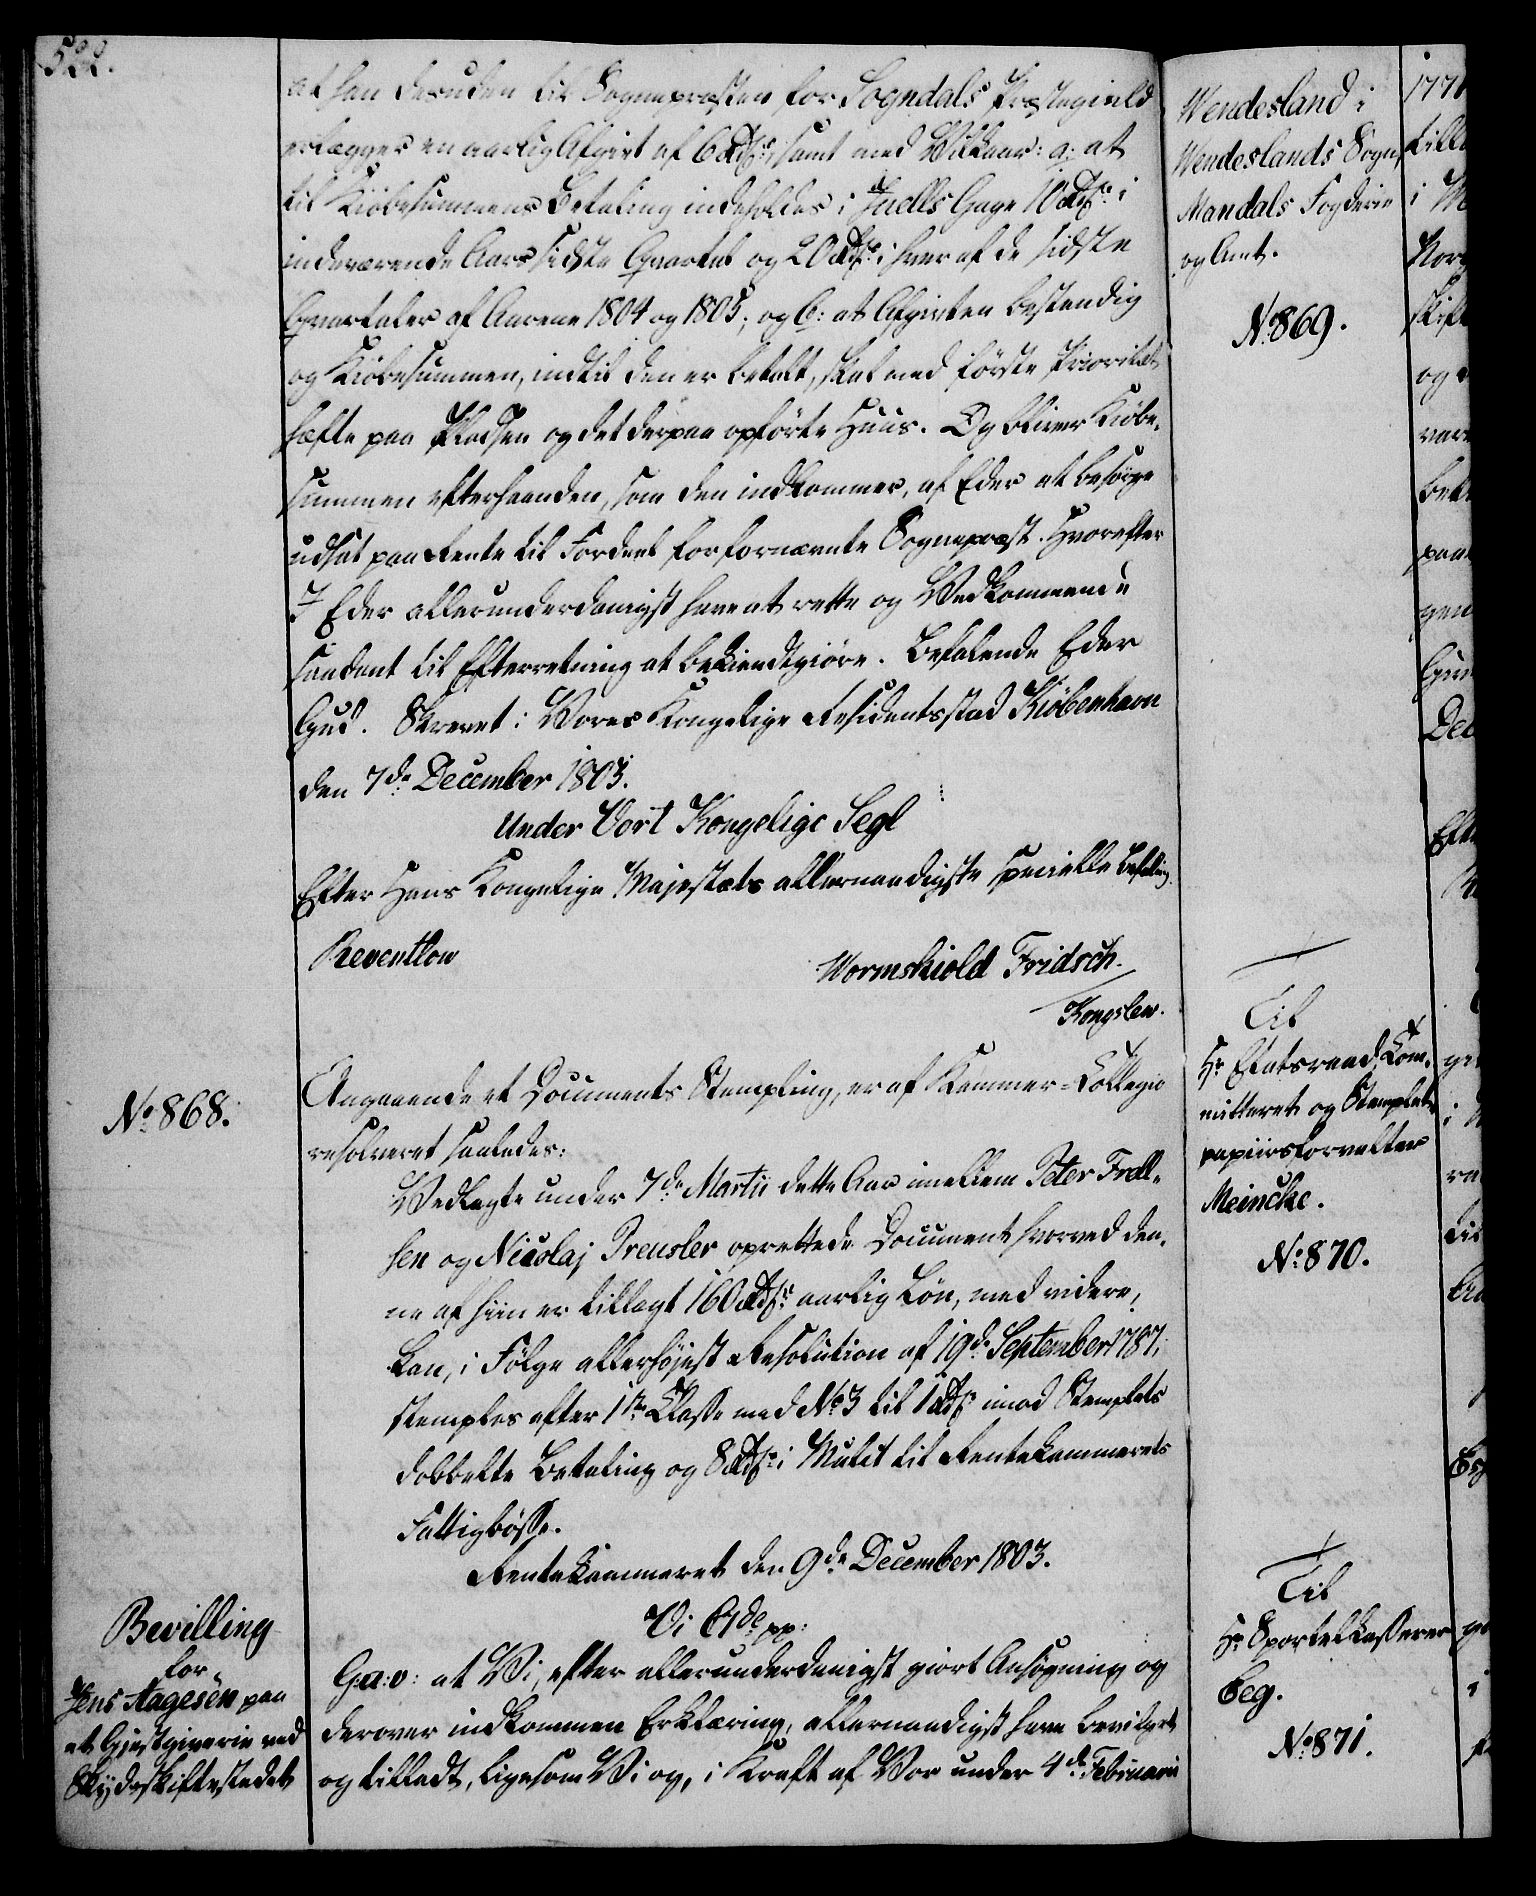 522.
at han desuden til Sognepræsten for Sogndals Præstegield
erlægger en aarlig Afgivt af 6 Rdlr, samt med Vilkaar: a: at
til Kiøbesummens Betaling indeholdes i Juells Gage 10 Rdlr i
indeværende Aars sidste Qvartal og 20 Rdlr i hver af de sidste
Qvartaler af Aarene 1804 og 1805; og b: at Afgivten bestendig
og Kiøbesummen, indtil den er betalt, skal med første Prioritet
hæfte paa Pladsen og det derpaa opførte Huus. Og bliver Kiøbe-
summen efterhaanden, som den indkommer, af Eder at besørge
udsat paa Rente til Fordeel for fornævnte Sognepræst. Hvorefter
I Eder allerunderdanigst have at rette og Vedkommende
saadant til Efterretning at bekiendtgiøre. Befalende Eder
Gud. Skrevet i Vores Kongelige Residentsstad Kiöbenhavn
den 7de December 1803.
Under Vort Kongelige Segl
Efter Hans Kongelige Majestæts allernaadigste specielle Befaling.
Reventlow
Wormskiold Fridsch.
Kongslew.
No 868.
Angaaende et Documents Stempling, er af Kammer-Collegio
resolveret saaledes:
Vedlagte under 7de Martii dette Aar imellem Peter Frell-
sen og Nicolaj Preusler oprettede Document hvorved den-
ne af hiin er tillagt 160 Rdlr aarlig Løn, med videre,
kan, i Følge allerhøjest Resolution af 19de September 1787,
stemples efter 1ste Classe med No 3 til 1 Rdlr imod Stemplets
dobbelte Betaling og 8 Rdlr i Mulct til Rentekammerets
Fattigbøsse.
Rentekammeret den 9de December 1803.
Bevilling
for
Jens Aagesen paa
et Giestgiverie ved
Skydsskiftestedet
Vi C 7de pp:
G: a: v: at Vi, efter allerunderdanigst giort Ansøgning og
derover indkommen Erklæring, allernaadigst have bevilget
og tilladt, ligesom Vi og, i Kraft af Vor under 4de Februarii
Wendesland i
Wendeslands Sogn,
Mandals Fogderie
og Amt.
No 869.
Til
Hr Etatsraad, Com-
mitteret og Stemplet-
papiirsforvalter
Meincke.
No 870.
Til
Hr Sportelkasserer
Beg.
No 871.